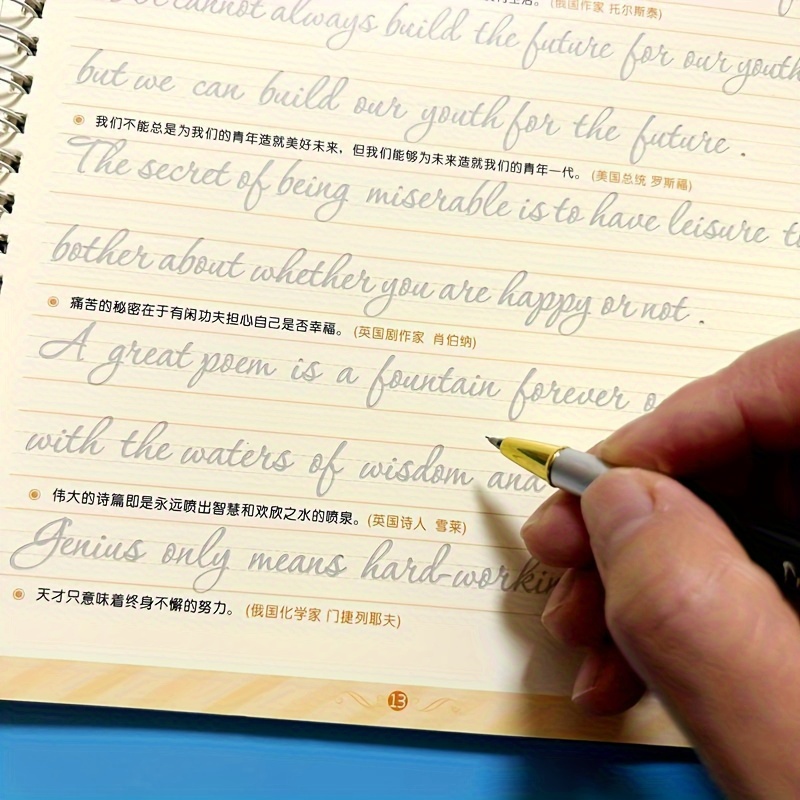 (俄国作家 托尔斯泰)
cannot always build the future for our youth
but we can build our youth for the future .
我们不能总是为我们的青年造就美好未来，但我们能够为未来造就我们的青年一代。(美国总统 罗斯福)
The secret of being miserable is to have leisure
bother about whether you are happy or not .
痛苦的秘密在于有闲功夫担心自己是否幸福。(英国剧作家 肖伯纳)
A great poem is a fountain forever
with the waters of wisdom and
伟大的诗篇即是永远喷出智慧和欢欣之水的喷泉。(英国诗人 雪莱)
Genius only means hard-workin
天才只意味着终身不懈的努力。(俄国化学家 门捷列耶夫)
13